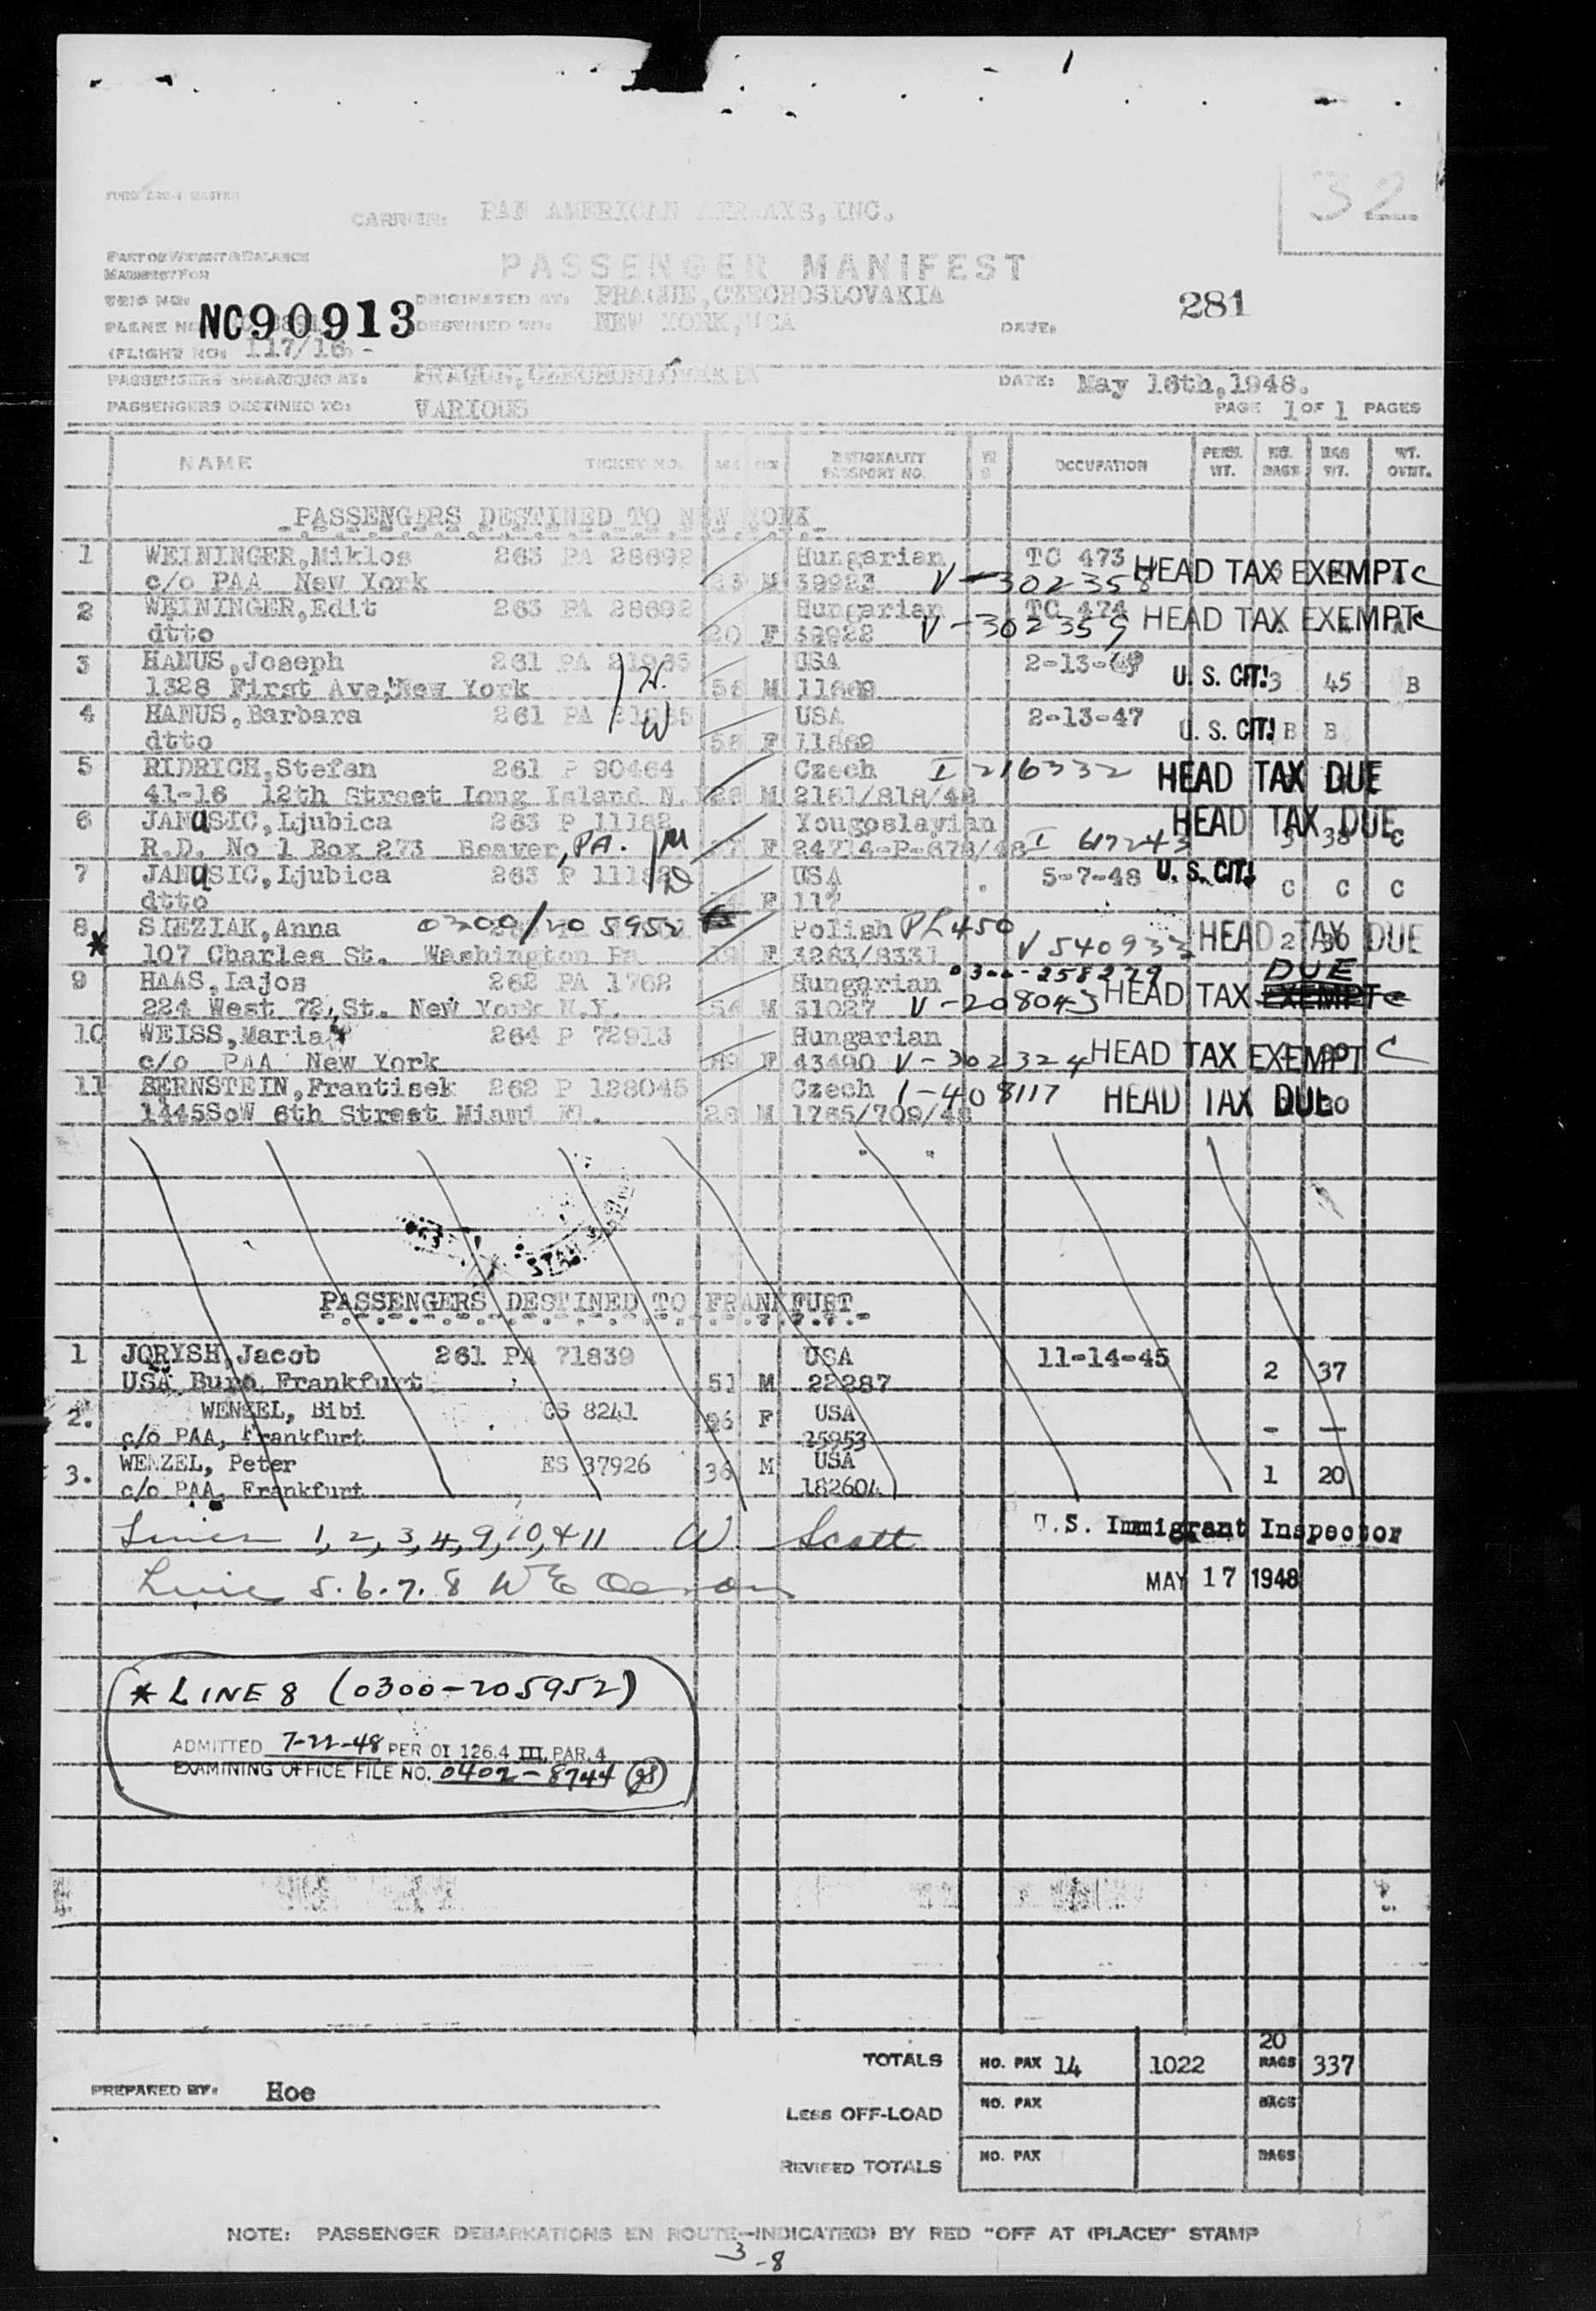 32
CARRIER: PAN AMERICAN AIRWAYS, INC.
PART OF WEIGHT & BALANCE
MANIFEST FOR
PASSENGER MANIFEST
TRIP NO:
ORIGINATED AT: PRAGUE, CZECHOSLOVAKIA
281
PLANE NO: NC90913
DESTINED TO: NEW YORK, USA
DATE:
(FLIGHT NO: 117/16) -
PASSENGERS EMBARKING AT: PRAGUE, CZECHOSLOVAKIA
DATE: May 16th, 1948.
PASSENGERS DESTINED TO: VARIOUS
PAGE 1 OF 1 PAGES
NAME TICKET NO. AGE SEX NATIONALITY PASSPORT NO. OCCUPATION PERS. WT. NO. BAGS BAG WT. WT. OVWT.
PASSENGERS DESTINED TO NEW YORK
1 WEININGER, Miklos 263 PA 28692 Hungarian TC 473 HEAD TAX EXEMPT C
c/o PAA New York 23 M 39923 V-302358
2 WEININGER, Edit 263 PA 28692 Hungarian TC 474 HEAD TAX EXEMPT C
dtto 20 F 39922 V-302359
3 HANUS, Joseph 261 PA USA 2-13- U.S. CIT! 3 45 B
1328 First Ave, New York W. M 11869
4 HANUS, Barbara 261 PA USA 2-13-47 U.S. CIT! B B
dtto W F 11869
5 RIDRICH, Stefan 261 P 90464 Czech I 216332 HEAD TAX DUE
41-16 12th Street Long Island N. M 2161/818/48
6 JANUSIC, Ljubica 263 P 11182 Yougoslavian HEAD TAX DUE
R.D. No 1 Box 273 Beaver, PA. F 24714-P-678/48 I 617243 38 C
7 JANUSIC, Ljubica 263 P USA 5-7-48 U.S. CIT! C C C
dtto F
8 SIEZIAK, Anna 0300/205952 Polish PL450 HEAD TAX DUE
* 107 Charles St. Washington Pa F 3263/8331 V 540933
9 HAAS, Lajos 262 PA 1762 Hungarian 0300-258279 DUE
224 West 72, St. New York N.Y. 56 M 31027 V-208043 HEAD TAX EXEMPT C
10 WEISS, Maria 264 P 72913 Hungarian
c/o PAA New York F 43490 V-302324 HEAD TAX EXEMPT C
11 BERNSTEIN, Frantisek 262 P 128045 Czech I-408117 HEAD TAX DUE
1445SoW 6th Street Miami Fl. M 1765/709/48
PASSENGERS DESTINED TO FRANKFURT
1 JORYSH, Jacob 261 PA 71839 USA 11-14-45 2 37
USA Buro Frankfurt 51 M 22287
2. WENZEL, Bibi GS 8241 F USA - -
c/o PAA, Frankfurt 25953
3. WENZEL, Peter ES 37926 36 M USA 1 20
c/o PAA, Frankfurt 182604
Lines 1, 2, 3, 4, 9, 10, & 11 W. Scott
U.S. Immigrant Inspector
Line 5. 6. 7. 8 W E
MAY 17 1948
* LINE 8 (0300-205952)
ADMITTED 7-22-48 PER OI 126.4 III, PAR. 4
EXAMINING OFFICE FILE NO. 0402-8744
TOTALS NO. PAX 14 1022 20 BAGS 337
PREPARED BY: Hoe
LESS OFF-LOAD NO. PAX BAGS
REVISED TOTALS NO. PAX BAGS
NOTE: PASSENGER DEBARKATIONS EN ROUTE-INDICATE(D) BY RED "OFF AT (PLACE)" STAMP
-3
-8